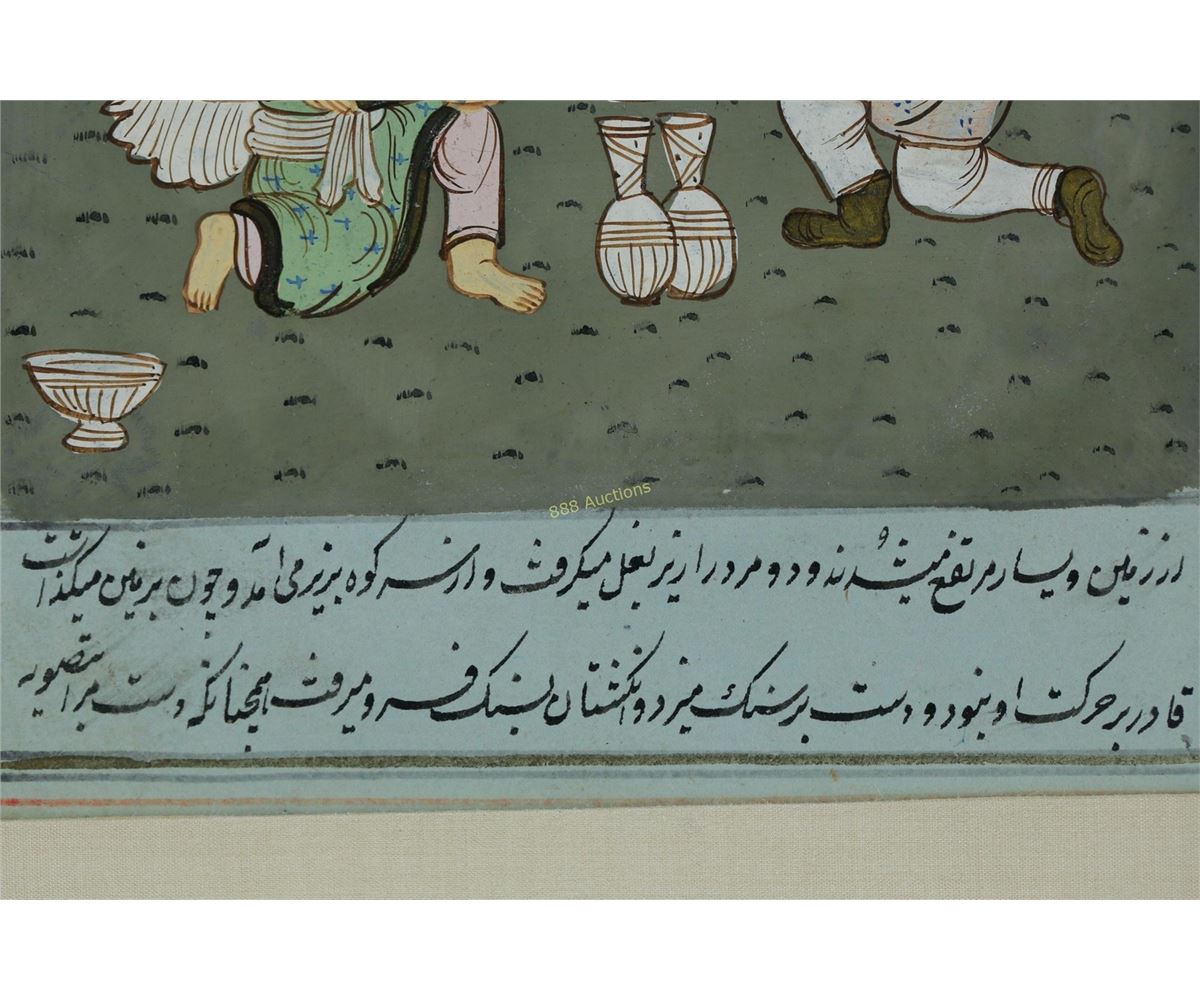 888 Auctions
از زمین و یسار مرتفع میشدند و دو مرد را زیر بغل میکرفت و از سر کوه بزیر می آمد و چون بر زمین میکذاشت
قادر بر حرکت او نبود و دست بر سنک میزد و انکشتان بسنک فرو میرفت همچنانکه دست